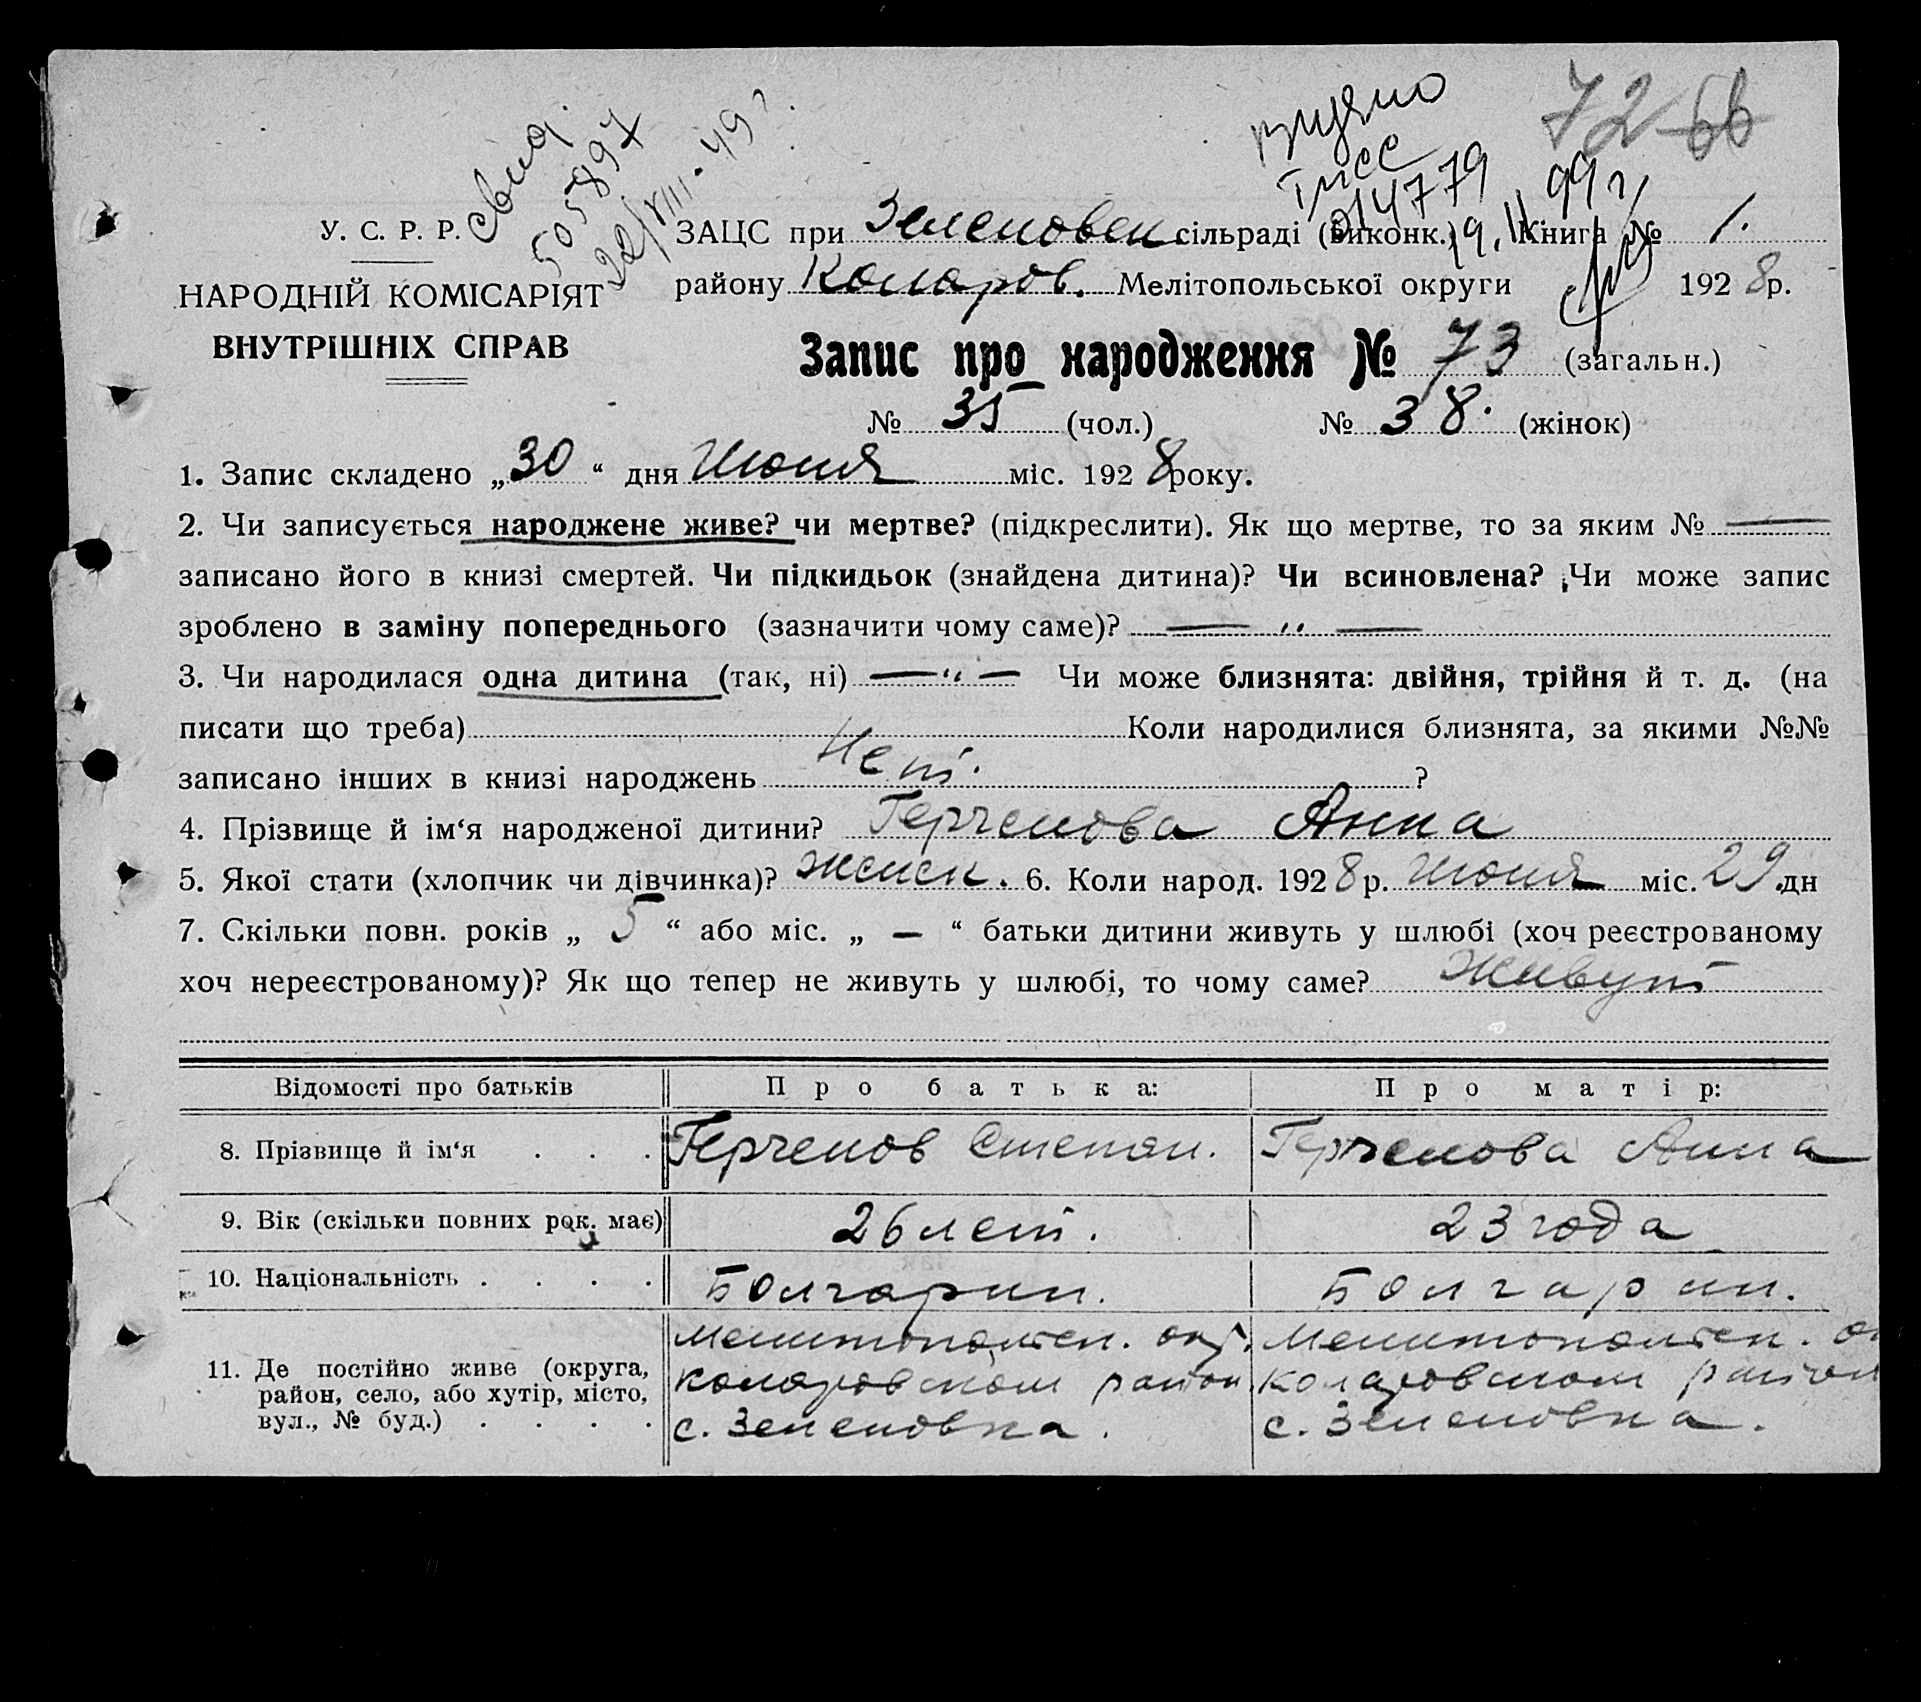 72 66
видяно
Свид.
505897
22/VIII-49 г.
214779
19.II 99 г.
У. С. Р. Р.
НАРОДНІЙ КОМІСАРІЯТ
ВНУТРІШНІХ СПРАВ
ЗАЦС при Зеленовск сільраді (виконк.) Книга № 1.
району Коларов. Мелітопольської округи 1928р.
Запис про народження № 73 (загальн.)
№ 35 (чол.) № 38. (жінок)
1. Запис складено „30“ дня Июня міс. 1928року.
2. Чи записується народжене живе? чи мертве? (підкреслити). Як що мертве, то за яким № —
записано його в книзі смертей. Чи підкидьок (знайдена дитина)? Чи всиновлена? Чи може запис
зроблено в заміну попереднього (зазначити чому саме)? — „ —
3. Чи народилася одна дитина (так, ні) — „ — Чи може близнята: двійня, трійня й т. д. (на
писати що треба) Коли народилися близнята, за якими №№
записано інших в книзі народжень Нет. ?
4. Прізвище й ім‘я народженої дитини? Герченова Анна
5. Якої стати (хлопчик чи дівчинка)? женск. 6. Коли народ. 1928р. Июня міс. 29.дн
7. Скільки повн. років „ 5 “ або міс. „ — “ батьки дитини живуть у шлюбі (хоч реєстрованому
хоч нереєстрованому)? Як що тепер не живуть у шлюбі, то чому саме? Живут
Відомості про батьків Про батька: Про матір:
8. Прізвище й ім‘я . . . Герченов Степан. Герченова Анна
9. Вік (скільки повних рок. має) 26 лет. 23 года
10. Національність . . . . Болгарин. Болгарин.
11. Де постійно живе (округа, район, село, або хутір, місто, вул., № буд.) . . . .
Мелитопольск. окр. Коларовском район с. Зеленовка.
Мелитопольск. ок Коларовском район с. Зеленовка.